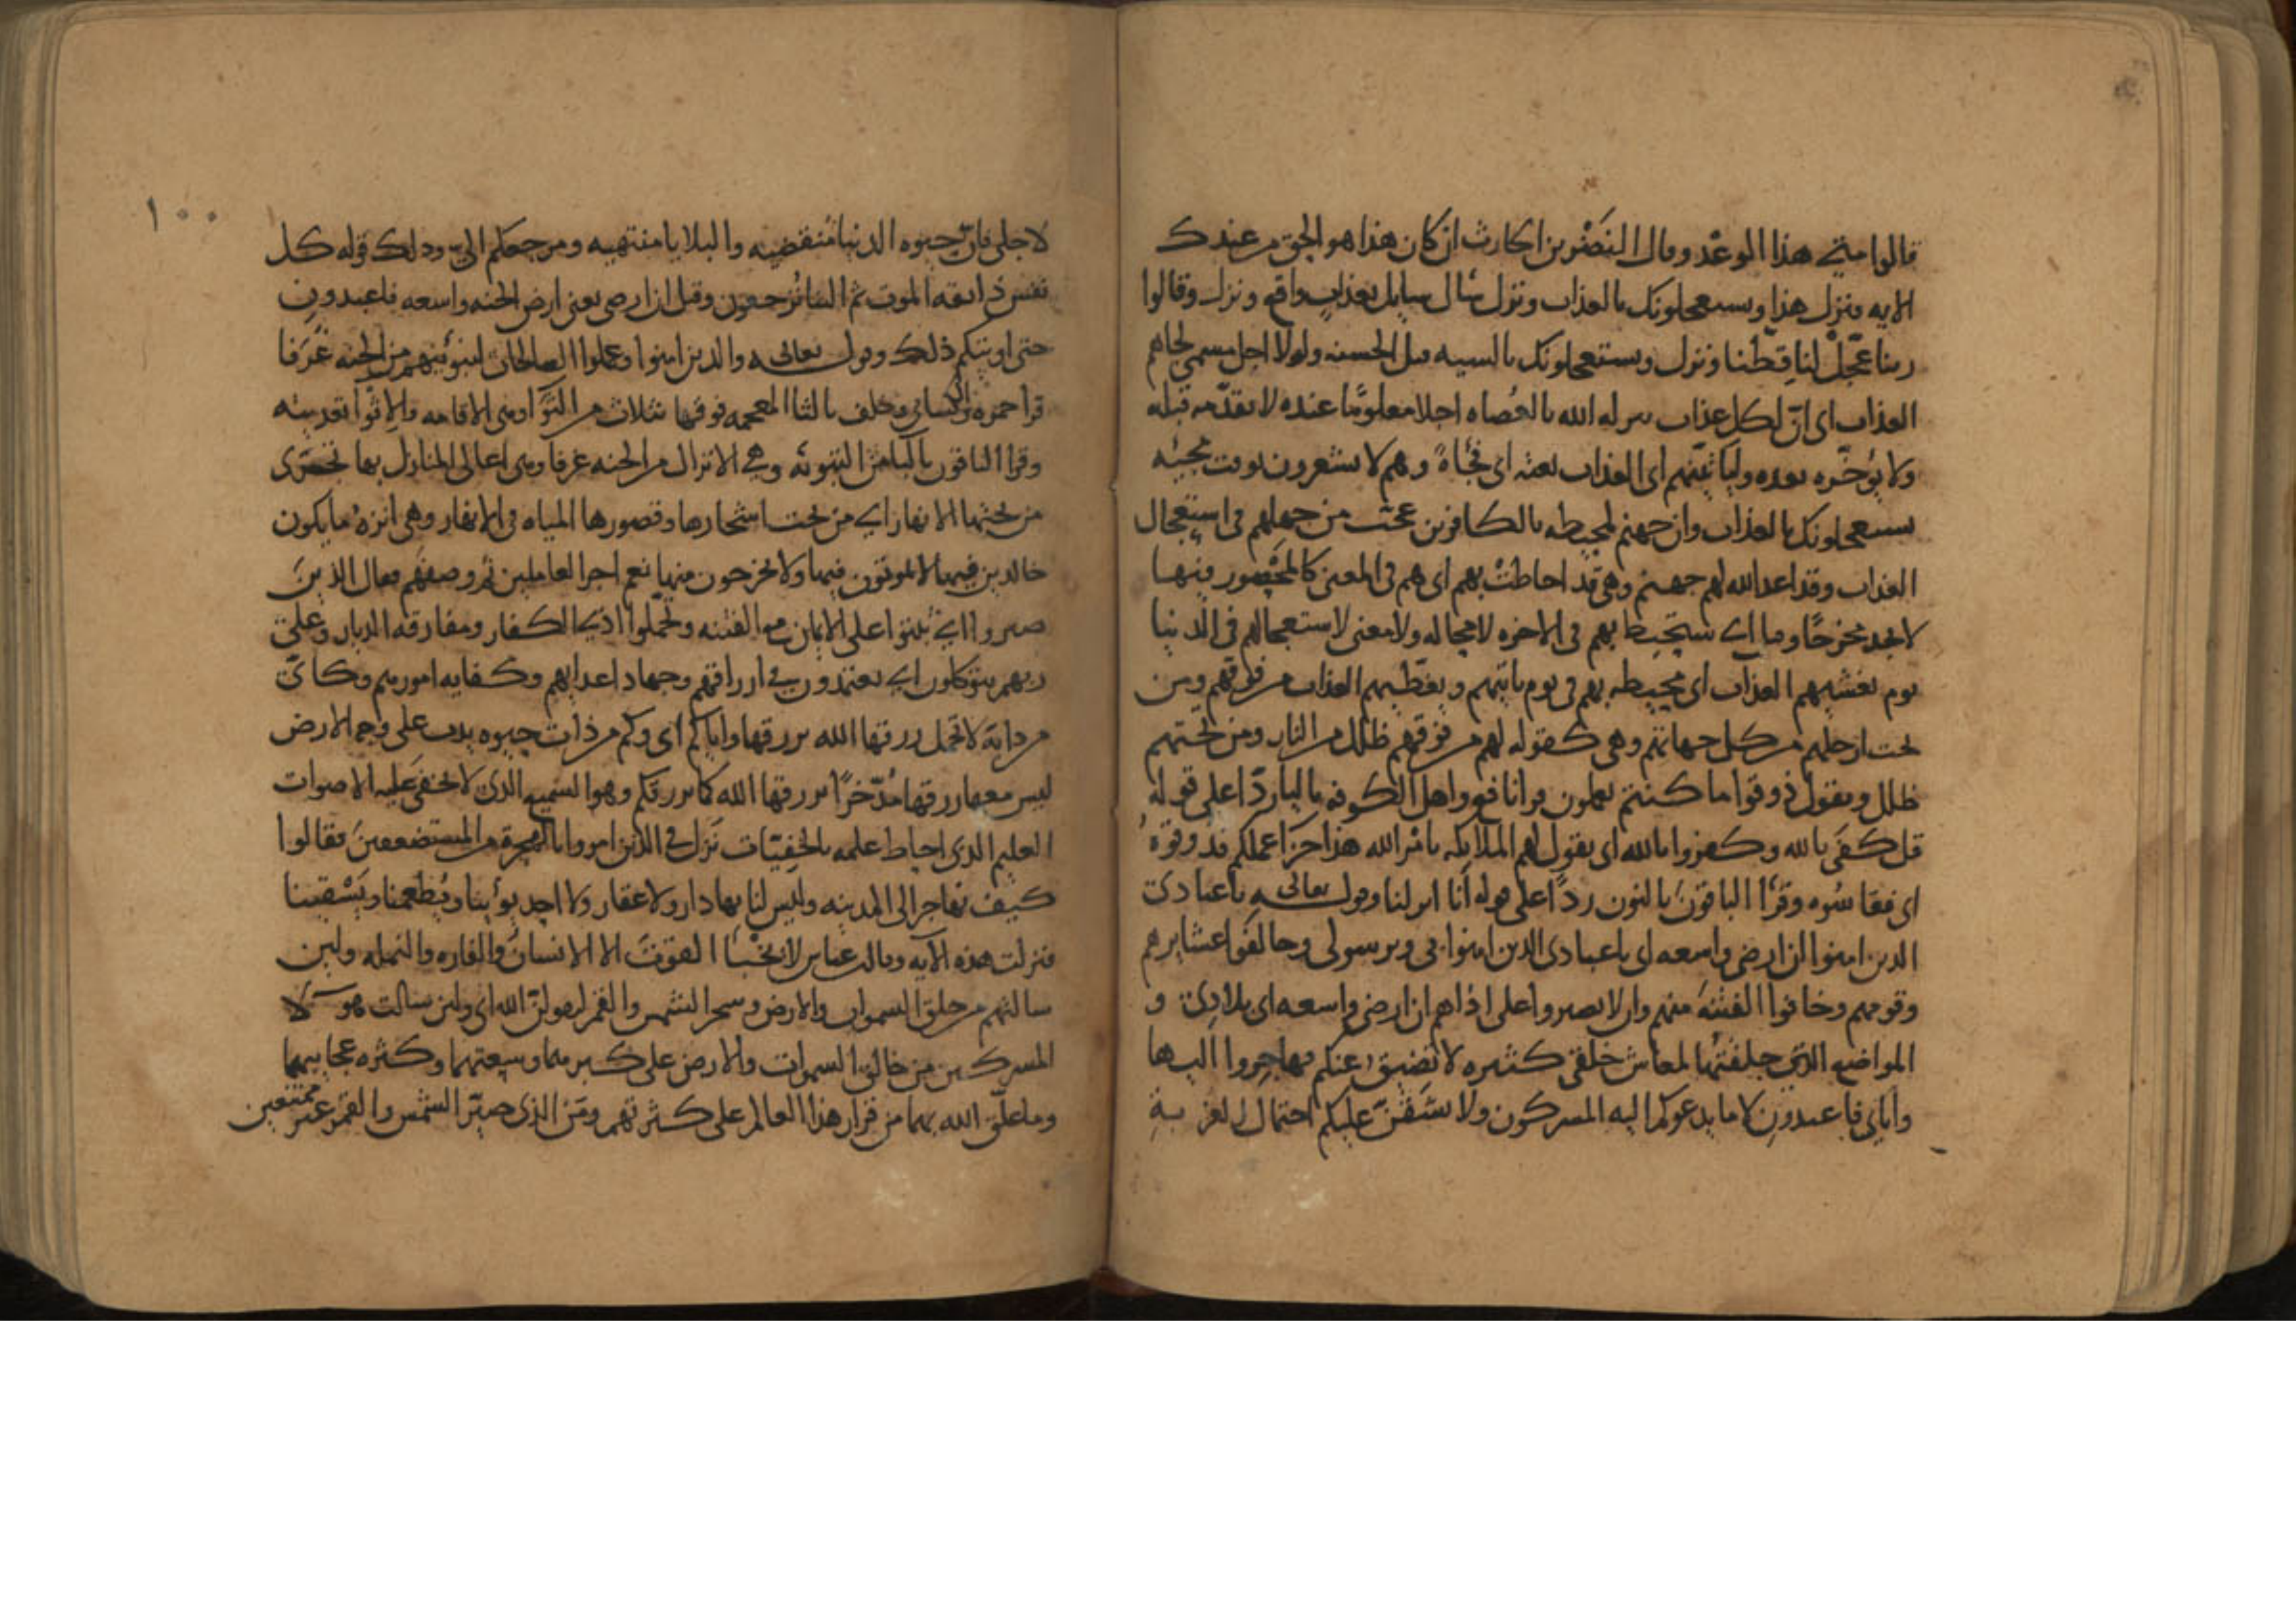 قالوا متى هذا الوعد وقال النضر بن الحارث ان كان هذا هو الحق من عندك
الايه ونزل هذا ويستعجلونك بالعذاب ونزل سال سايل بعذاب واقع ونزل وقالوا
ربنا عجل لنا قطنا ونزل ويستعجلونك بالسيه قبل الحسنه ولولا اجل مسمى لجاهم
العذاب اى ان لكل عذاب ينزله الله بالعصاه اجلا معلوما عنده لا يقدمه قبله
ولا يؤخره بعده ولياتينهم اى العذاب بغته اى فجأة وهم لا يشعرون بوقت مجيئه
يستعجلونك بالعذاب وان جهنم لمحيطه بالكافرين عجب من جهلهم فى استعجال
العذاب وقد اعد الله لهم جهنم وهى قد احاطت بهم اى هم فى المعنى كالمحصور فيها
لا يجد مخرجا وما اى ستحيط بهم فى الاخره لا محاله ولا معنى لاستعجالهم فى الدنيا
يوم يغشيهم العذاب اى محيطه بهم فى يوم ياتيهم ويغطيهم العذاب من فوقهم ومن
تحت ارجلهم من كل جهاتهم وهى كقوله لهم من فوقهم ظلل من النار ومن تحتهم
ظلل ويقول ذوقوا ما كنتم تعملون قرا نافع واهل الكوفه باليا ردا على قوله
قل كفى بالله وكفروا بالله اى يقول لهم الملايكه بامر الله هذا جزا عملكم فذوقوه
اى فقاسوه وقرأ الباقون بالنون ردا على قوله أنا انزلنا وقول تعالى يا عبادى
الذين امنوا ان ارضى واسعه اى يا عبادى الذين امنوا بى وبرسولى وخالفوا عشايرهم
وقومهم وخافوا الفتنه منهم وان لا يصبروا على اذاهم ان ارضى واسعه اى بلادى و
المواضع التى خلقتها لمعاش خلقى كثيره لا تضيق عنكم فهاجروا اليها
واياى فاعبدون لا ما يدعوكم اليه المشركون ولا يشقن عليكم احتمال الغربة
١٠٠
لاجلى فان حيوه الدنيا منقضيه والبلايا منتهيه ومرجعكم الى وذلك قوله كل
نفس ذايقه الموت ثم الينا ترجعون وقيل ان ارضى يعنى ارض الجنه واسعه فاعبدون
حتى اوتيكم ذلك وقول تعالى والذين امنوا وعملوا الصالحات لنبوئنهم من الجنه غرفا
قرا حمزه والكسائى وخلف بالثا المعجمه فوقها بثلاث من الثوا وهى الاقامه والاثوا تعديته
وقرا الباقون بالبا من التبوئه وهى الانزال من الجنه غرفا وهى اعالى المنازل بها تجرى
من تحتها الانهار اى من تحت اشجارها وقصورها المياه فى الانهار وهى انزه ما يكون
خالدين فيها لا يموتون فيها ولا يخرجون منها نعم اجر العاملين ثم وصفهم فقال الذين
صبروا اى ثبتوا على الايمان مع الفتنه وتحملوا اذى الكفار ومفارقه الديار وعلى
ربهم يتوكلون اى يعتمدون فى ارزاقهم وجهاد اعدايهم وكفايه امورهم وكاين
من دابة لا تحمل رزقها الله يرزقها واياكم اى وكم من ذات حيوه يدب على وجه الارض
ليس معها رزقها مدخرا يرزقها الله كما يرزقكم وهو السميع الذى لا تخفى عليه الاصوات
العليم الذى احاط علمه بالخفيات نزل فى الذين امروا بالهجرة من المستضعفين فقالوا
كيف نهاجر الى المدينه وليس لنا بها دار ولا عقار ولا احد يؤينا ويطعمنا ويسقينا
فنزلت هذه الايه وقال ابن عباس لا يخبأ القوت الا الانسان والفاره والنمله ولين
سالتهم من خلق السموات والارض وسخر الشمس والقمر ليقولن الله اى ولئن سالت هولا
المشركين من خالق السموات والارض على كبرهما وسعتهما وكثره عجايبهما
وما علق الله بهما من قرار هذا العالم على كثرتهم ومن الذى صير الشمس والقمر غير ممتنعين